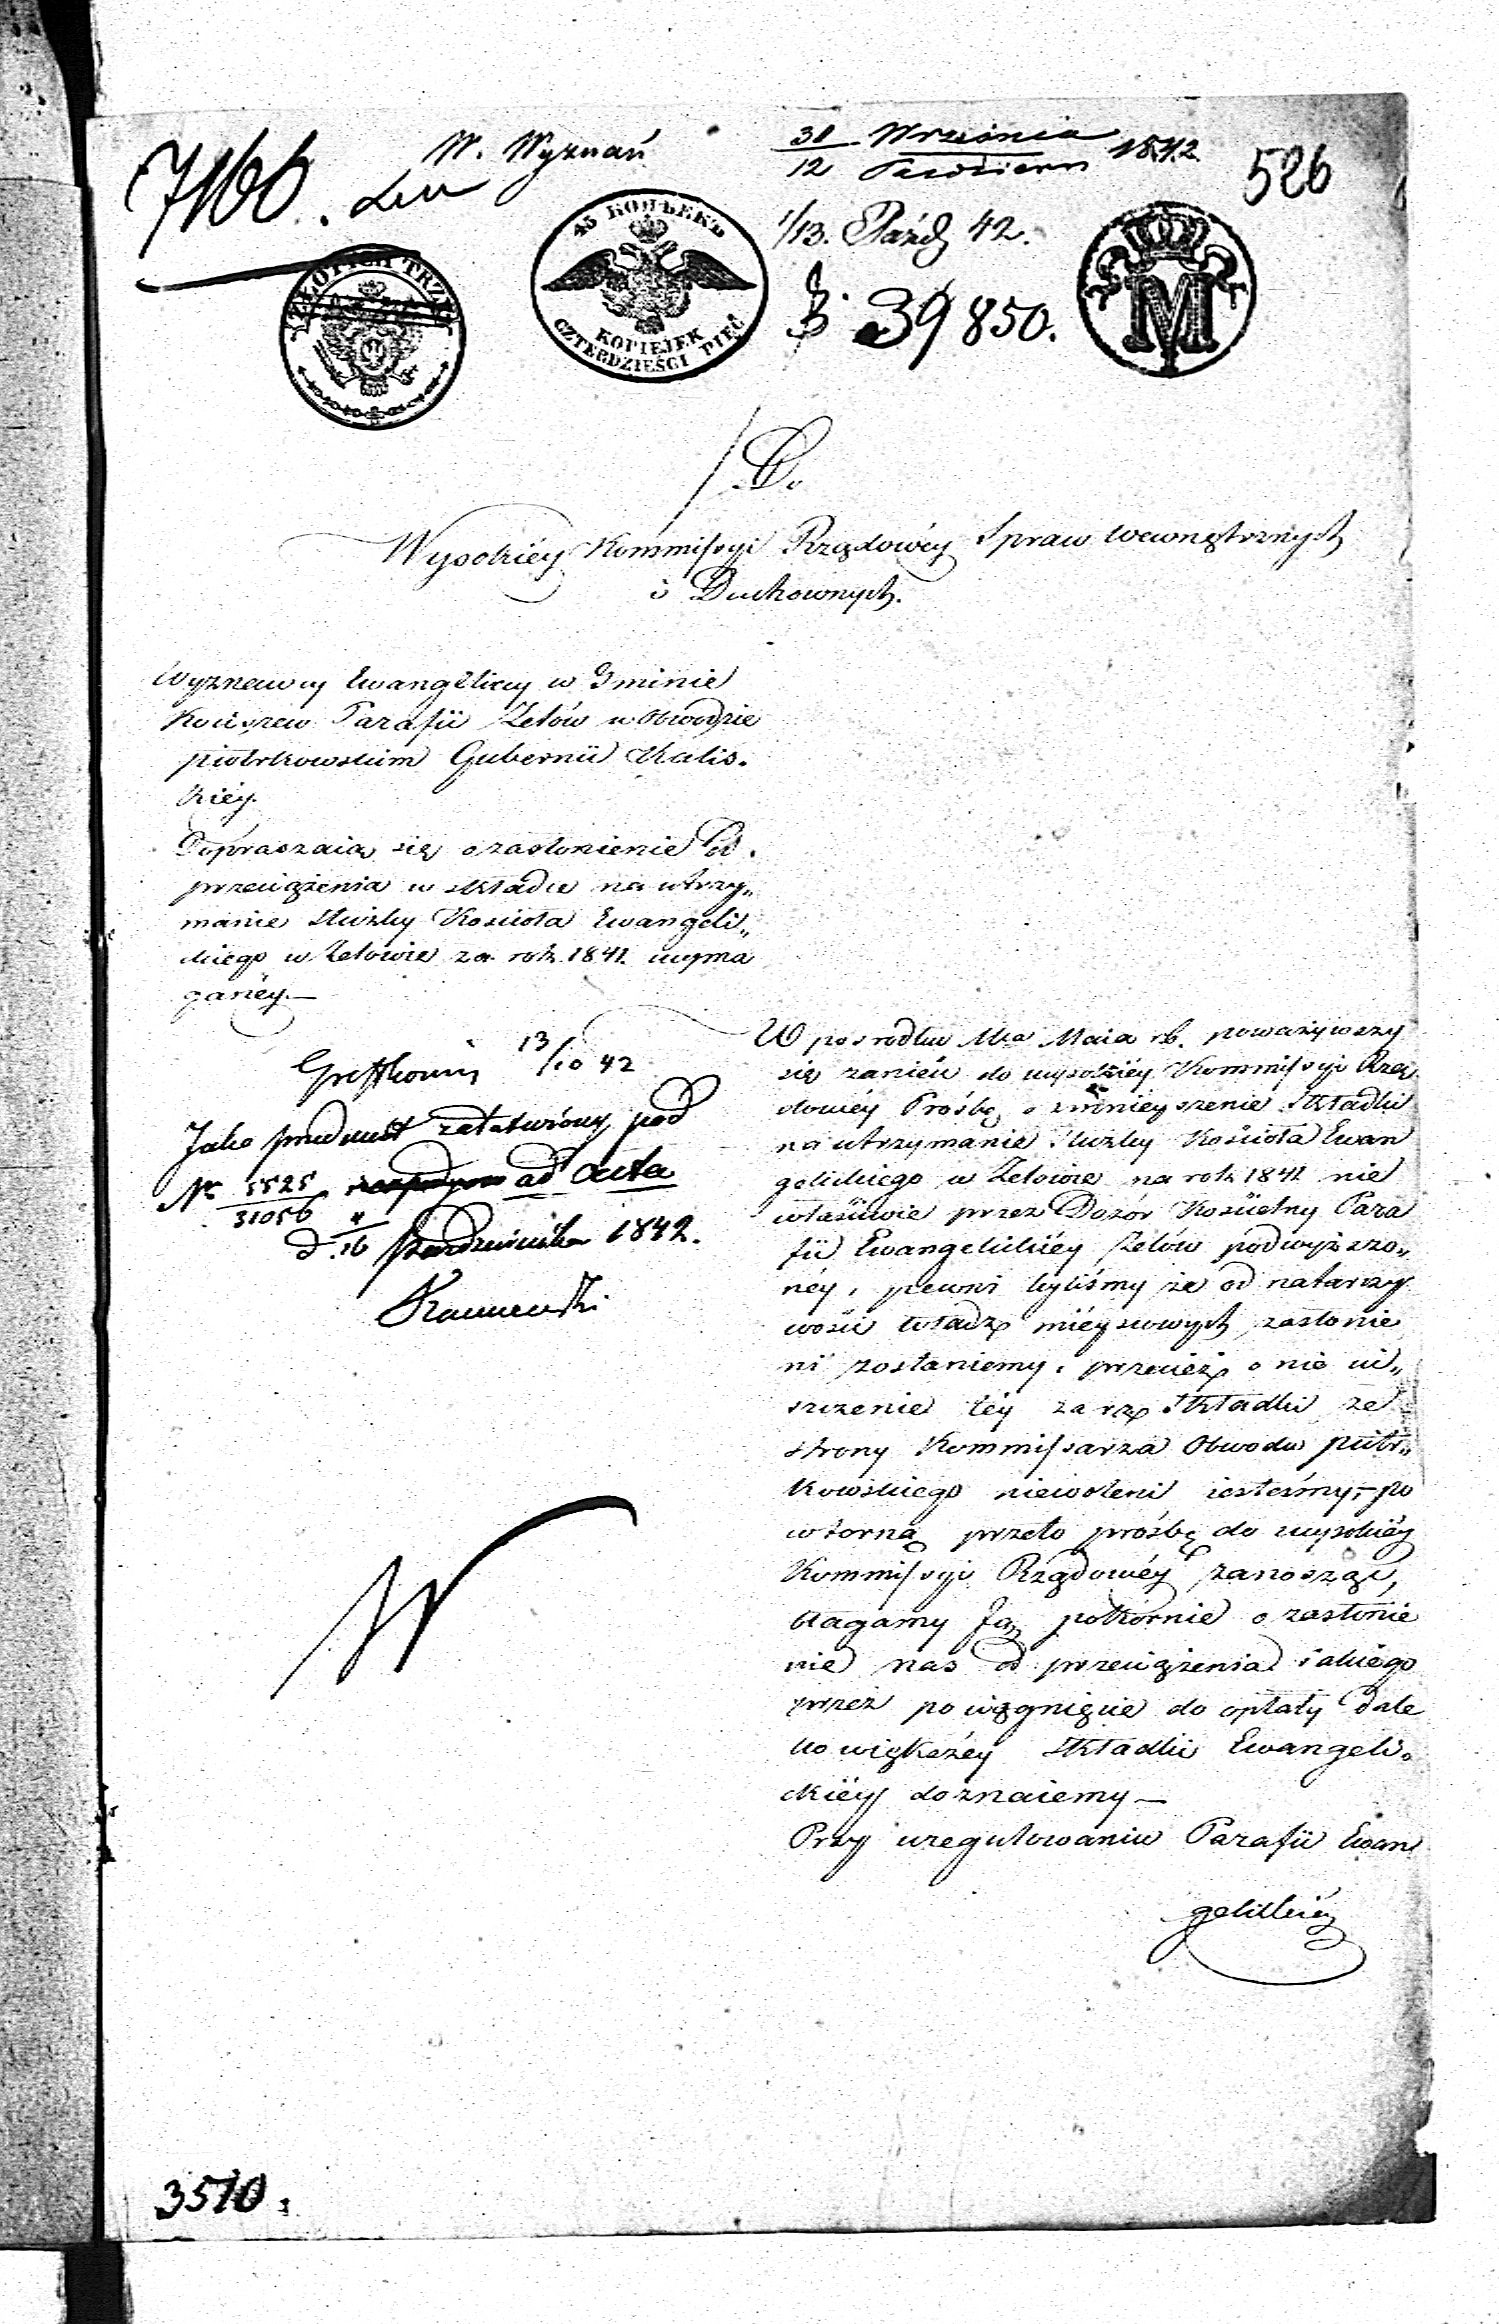 7166.
W. Wyznań
30 Września 1842
12 Październ
526
1/13. Paźdz 42.
39850.
ZŁOTYCH TRZY
45 КОПѢЕКЪ
KOPIEJEK CZTERDZIEŚCI PIĘĆ
M
Do
Wysokiéy Kommissyi Rządowéy Spraw Wewnętrznych
i Duchownych.
Wyznawcy Ewangeliccy w Gminie
Kociszew Parafii Zelów w Obwodzie
piotrkowskim Gubernii Kalis.
kiéy.
Dopraszaią się o zasłonienie od
przeciążenia w składce na utrzy„
manie służby Kościoła Ewangeli„
ckiego w Zelowie za rok 1841. wyma
ganéy.—
13/10 42
Jako przedmiot załatwiony pod
Nr 5525 ad Acta
31056
d. 4/16 Października 1842.
W posrodku Mca Maia rb. poważywszy
się zanieść do wysokiéy Kommissyi Rzą
dowéy Prośbę o zmnieyszenie Składki
na utrzymanie służby Kościoła Ewan
gelickiego w Zelowie na rok 1841 nie
właściwie przez Dozór Kościelny Para
fii Ewangelickiéy Zelów podwyższo„
néy, pewni byliśmy że od natarczy
wości władz mieyscowych zasłonie
ni zostaniemy, przecież o nie ui„
szczenie téy zarz Składki ze
strony Kommissarza Obwodu piotr„
kowskiego niewoleni iesteśmy,— po
wtorną przeto prośbę do wysokiéy
Kommissyi Rządowéy zanosząc,
błagamy Ją pokornie o zasłonie
nie nas od przeciążenia iakiego
przez pociągnięcie do opłaty dale
ko większéy Składki Ewangeli„
ckiéy doznaiemy—
Przy uregulowaniu Parafii Ewan
gelickiéy
3510.